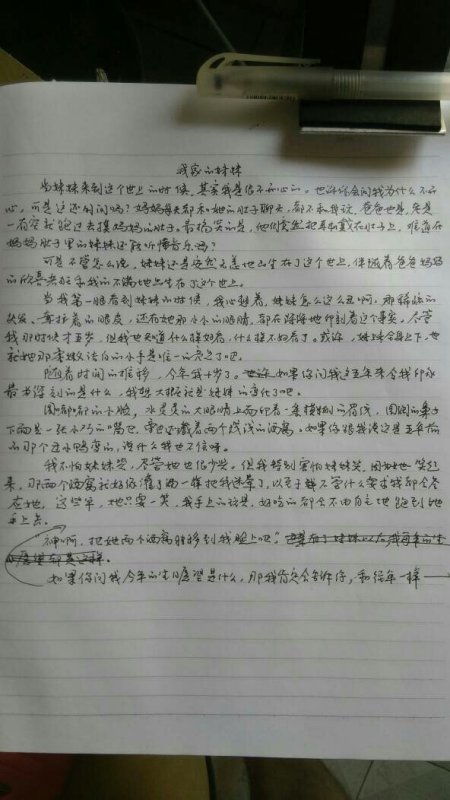 我家的妹妹
当妹妹来到这个世上的时候，其实我是很不开心的。也许你会问我为什么不开
心，可是这还用问吗？妈妈每天都和她的肚子聊天，都不和我说，爸爸也是，老是
一有空就跑过去摸妈妈的肚子。最搞笑的是，他们竟然把耳机戴在肚子上，难道在
妈妈肚子里的妹妹还能听懂音乐吗？
可是不管怎么说，妹妹还是安然无恙地出生在了这个世上，伴随着爸爸妈妈
的欣喜和我的不满地出生在了这个世上。
当我第一眼看到妹妹的时候，我心想着，妹妹怎么这么丑啊，那稀疏的
头发、耷拉着的眼皮，还有她那小小的眼睛，都在深深地印刻着这个事实。尽管
我那时候才五岁，但我也知道什么接好看，什么接不好看了。或许，妹妹全身上下，也
就她那李嫩洁白的小手是唯一的亮点了吧。
随着时间的推移，今年我十岁了。如果你问我这五年来令我印象
最为深刻的是什么，我想大概就是妹妹的变化了吧。
圆嘟嘟的小脸，水灵灵的大眼睛上面印着一条模糊的眉线，圆圆的鼻子
下面是一张小巧的嘴巴，旁边还藏着两个浅浅的酒窝。如果你跟我说这是五年前
的那个丑小鸭变的，说什么我也不信呀。
我不怕妹妹哭，尽管她也很少哭。但我特别害怕妹妹笑，因为她一笑起
来，那两个酒窝就好像灌了酒一样把我迷晕了，以至于无论什么要求我都会答
应她，这些年，她只要一笑，我手上的玩具、好吃的都会不由自主地跑到她
手上去。
神啊，把她两个酒窝转移到我脸上吧！
如果你问我今年的生日愿望是什么，那我肯定会告诉你，和往年一样——